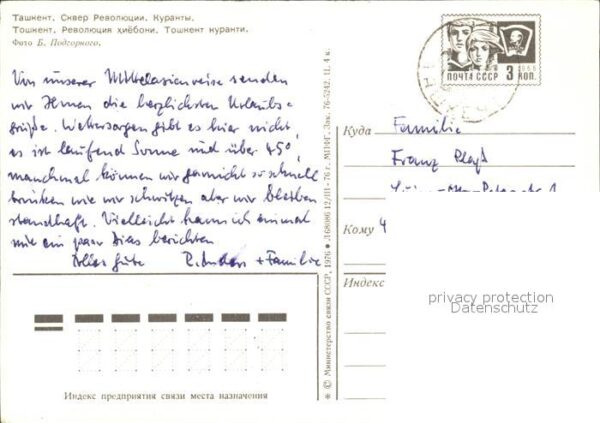 Ташкент. Сквер Революции. Куранты.
Тошкент. Революция хиёбони. Тошкент куранти.
Фото Б. Подгорного.
Von unserer Mittelasienreise senden
wir Ihnen die herzlichsten Urlaubs-
grüße. Wettersorgen gibt es hier nicht,
es ist laufend Sonne und über 45°,
manchmal können wir garnicht so schnell
trinken wie wir schwitzen aber wir bleiben
standhaft. Vielleicht kann ich einmal
mit ein paar Dias berichten
Alles Gute R. + Familie
Индекс предприятия связи места назначения
* © Министерство связи СССР, 1976 • 12/III-76 г. МПФГ. Зак. 76-5242. Ц. 4 к.
ПОЧТА СССР 3 КОП.
1966
Куда Familie
Franz
Кому 4
Индекс
privacy protection
Datenschutz